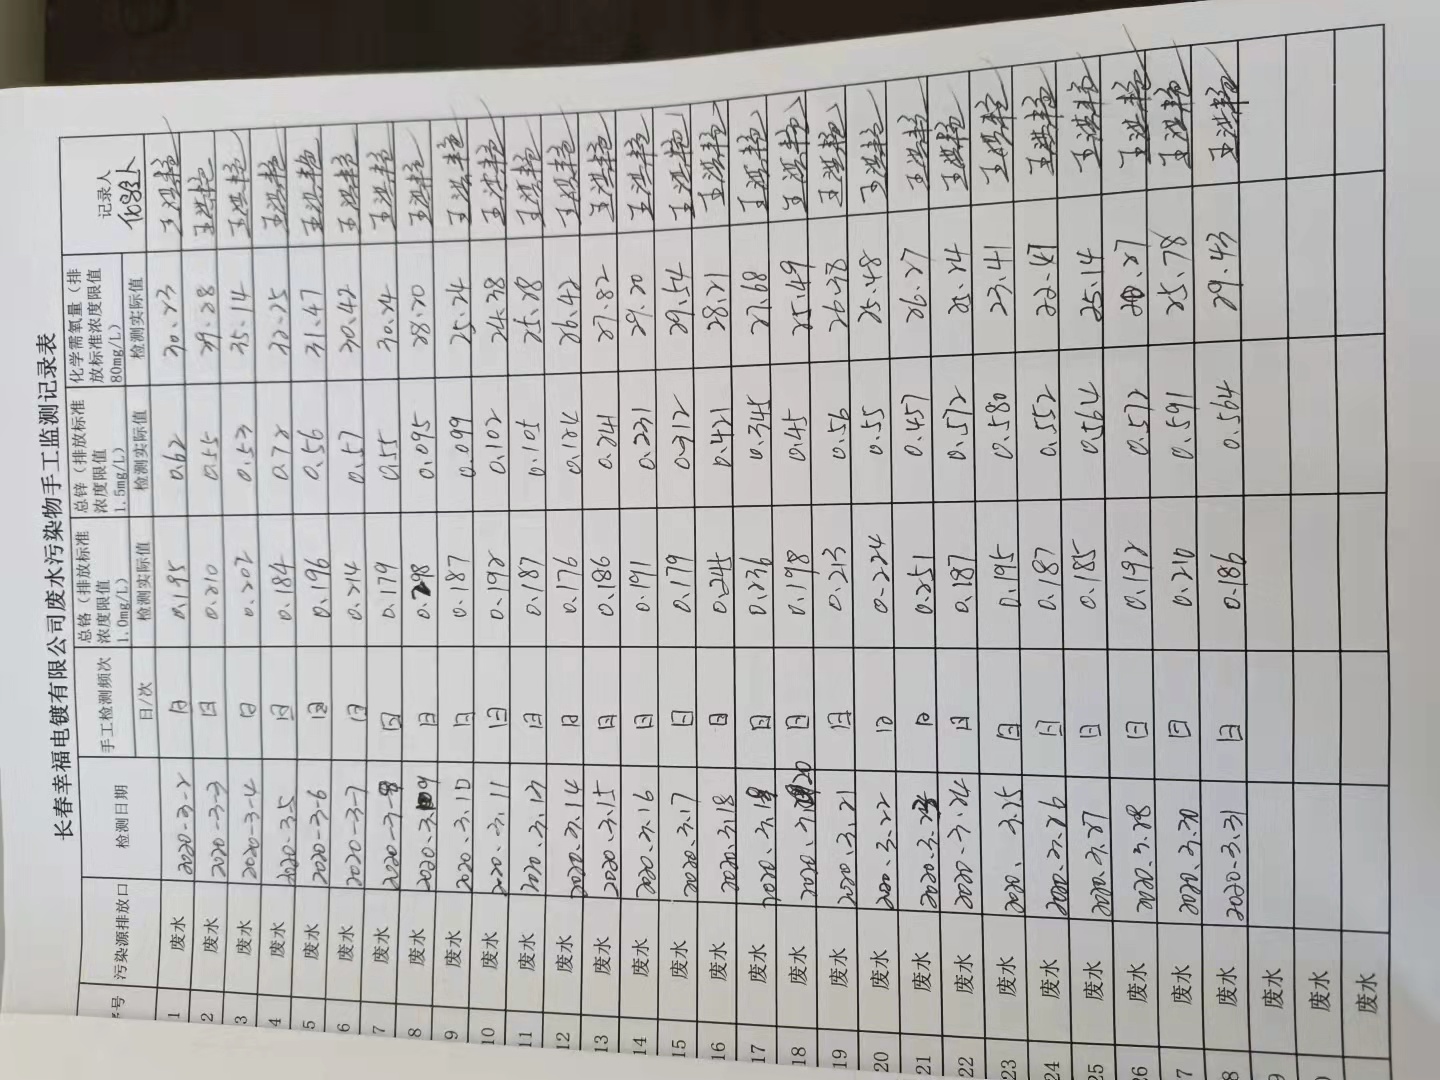 长春幸福电镀有限公司废水污染物手工监测记录表
号 污染源排放口 检测日期 手工检测频次 总铬（排放标准浓度限值1.0mg/L） 总锌（排放标准浓度限值1.5mg/L） 化学需氧量（排放标准浓度限值80mg/L） 记录人
日/次 检测实际值 检测实际值 检测实际值 化验人
1 废水 2020-3-2 1日 0.195 0.62 30.23 王洪艳
2 废水 2020-3-3 1日 0.210 0.55 29.28 王洪艳
3 废水 2020-3-4 1日 0.202 0.53 35.14 王洪艳
4 废水 2020-3.5 1日 0.184 0.72 32.25 王洪艳
5 废水 2020-3-6 1日 0.196 0.56 31.47 王洪艳
6 废水 2020-3-7 1日 0.214 0.57 30.42 王洪艳
7 废水 2020-3-8 1日 0.179 0.55 30.24 王洪艳
8 废水 2020.3.09 1日 0.298 0.095 28.20 王洪艳
9 废水 2020.3.10 1日 0.187 0.099 25.24 王洪艳
10 废水 2020.3.11 1日 0.192 0.102 24.28 王洪艳
11 废水 2020.3.13 1日 0.187 0.105 25.28 王洪艳
12 废水 2020.3.14 1日 0.176 0.124 26.42 王洪艳
13 废水 2020.3.15 1日 0.186 0.241 27.82 王洪艳
14 废水 2020.3.16 1日 0.191 0.231 29.20 王洪艳
15 废水 2020.3.17 1日 0.179 0.312 29.54 王洪艳
16 废水 2020.3.18 1日 0.245 0.421 28.21 王洪艳
17 废水 2020.3.19 1日 0.236 0.345 27.68 王洪艳
18 废水 2020.3.20 1日 0.198 0.45 25.49 王洪艳
19 废水 2020.3.21 1日 0.213 0.56 26.28 王洪艳
20 废水 2020.3.22 1日 0.224 0.55 25.48 王洪艳
21 废水 2020.3. 1日 0.251 0.457 26.27 王洪艳
22 废水 2020.3.24 1日 0.187 0.572 25.24 王洪艳
23 废水 2020.3.25 1日 0.195 0.580 23.41 王洪艳
24 废水 2020.3.26 1日 0.187 0.552 22.47 王洪艳
25 废水 2020.3.27 1日 0.185 0.564 25.14 王洪艳
26 废水 2020.3.28 1日 0.192 0.572 王洪艳
7 废水 2020.3.30 1日 0.210 0.591 25.78 王洪艳
8 废水 2020.3.31 1日 0.186 0.564 29.43 王洪艳
9 废水
废水
废水